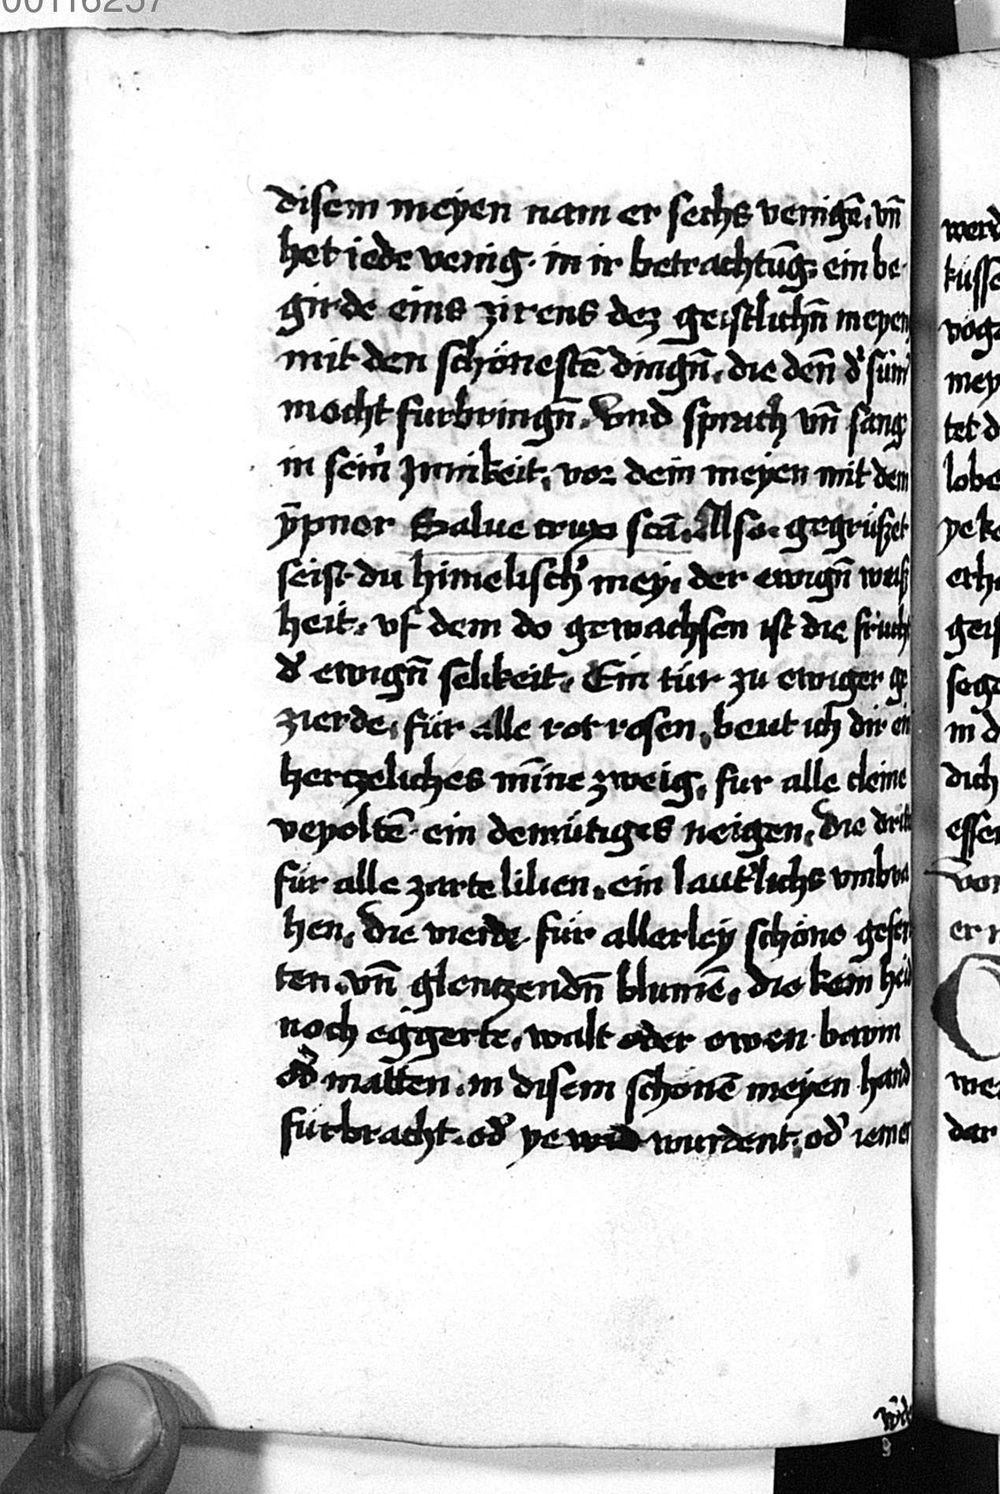 disem meyen nam er sechs venigē. vn̄
het iede venig. in ir betrachtūg ein be
girde eins zirens dez geistlichn̄ meyen
mit den schönestē dingn̄. die den̄ d' sum
mocht furbringn̄. Vnd sprach vn̄ sang
in sein' Innikeit. vor dem meyen mit dem
ȳpner Salue crux scā. Also. gegrüßet
seist du himelisch' mey. der ewign̄ weiß
heit. vf dem do gewachsen ist die frucht
d' ewign̄ selikeit. Ein tür zu ewiger ge
zierde. für alle rot rosen. beut ich dir ein
hertzeliches mīne zweig. fur alle cleine
vepoltē ein demütiges neigen. die drit
für alle zarte lilien. ein laut'lichs vmbva
hen. die vierde für allerley schöne gefer
ten. vn̄ glentzendn̄ blumē. die kein heid
noch eggerte. walt oder owen baum
od' matten. in disem schönē meyen hand
fürbracht. od' ye wurdent. od' iemer
werd
küsse
vog
mey
tet d
lobe
ye k
erh
geis
sege
in d
dich
essen
von
er
we
dar
00116257